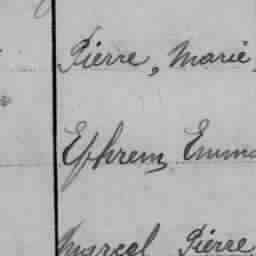 Pierre, Marie,
Ephrem Emma
Marcel Pierre